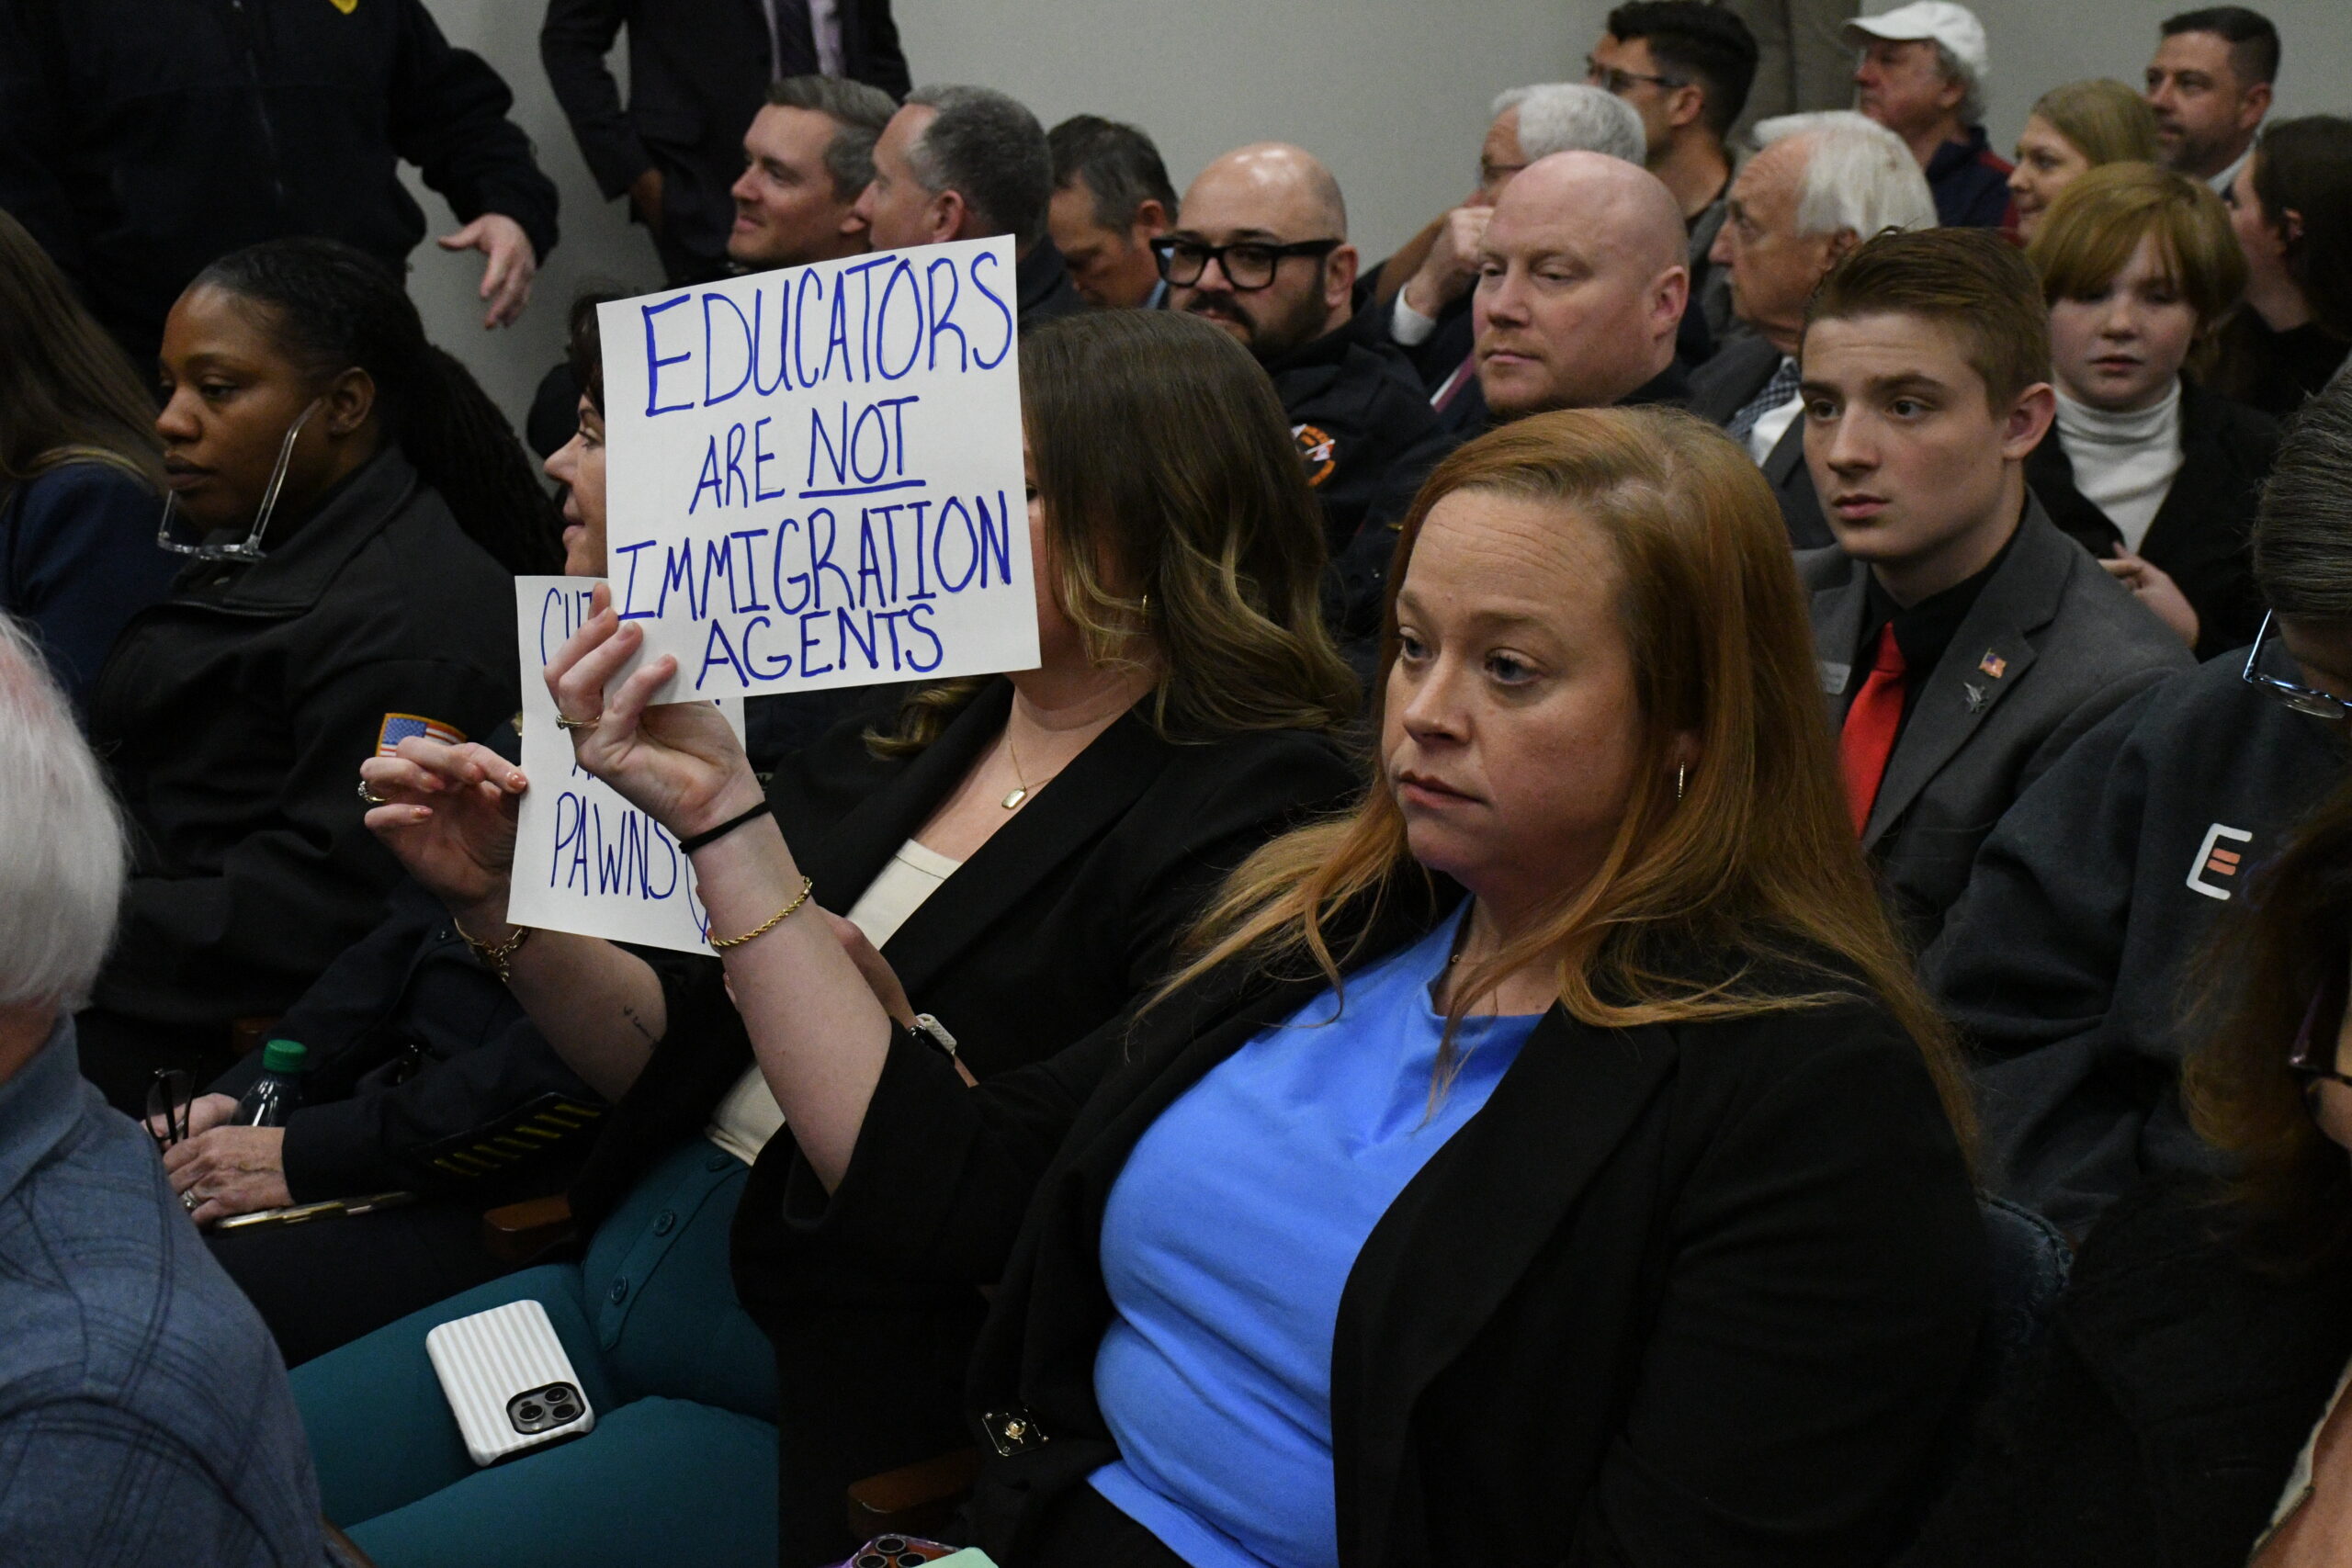 EDUCATORS
ARE NOT
IMMIGRATION
AGENTS
PAWNS
E